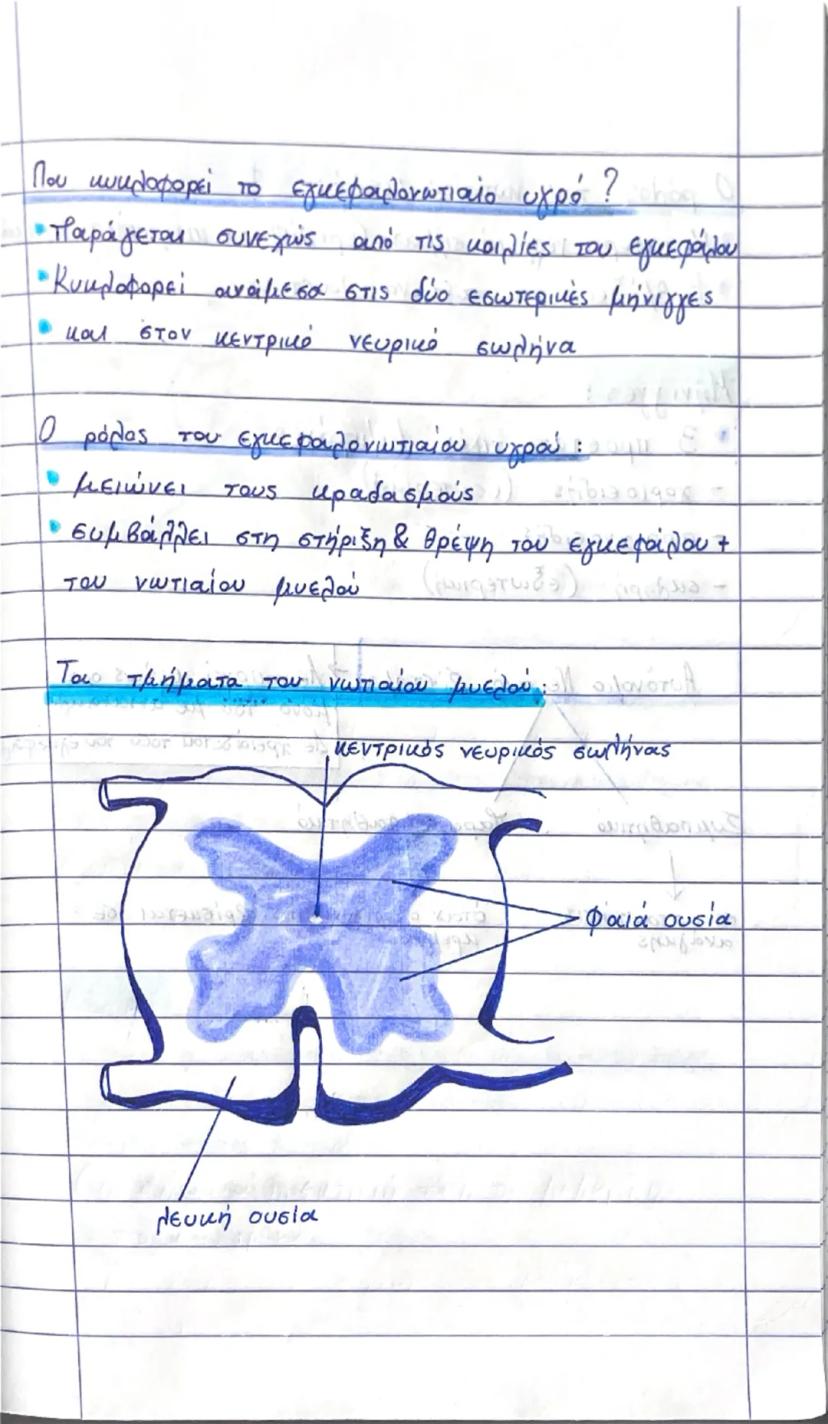 Που κυκλοφορεί το εγκεφαλονωτιαίο υγρό?
• Παράγεται συνεχώς από τις κοιλίες του εγκεφάλου
• Κυκλοφορεί ανάμεσα στις δύο εσωτερικές μήνιγγες
• και στον κεντρικό νευρικό σωλήνα
Ο ρόλος του εγκεφαλονωτιαίου υγρού:
• μειώνει τους κραδασμούς
• συμβάλλει στη στήριξη & θρέψη του εγκεφάλου +
του νωτιαίου μυελού
Τα τμήματα του νωτιαίου μυελού:
κεντρικός νευρικός σωλήνας
φαιά ουσία
λευκή ουσία